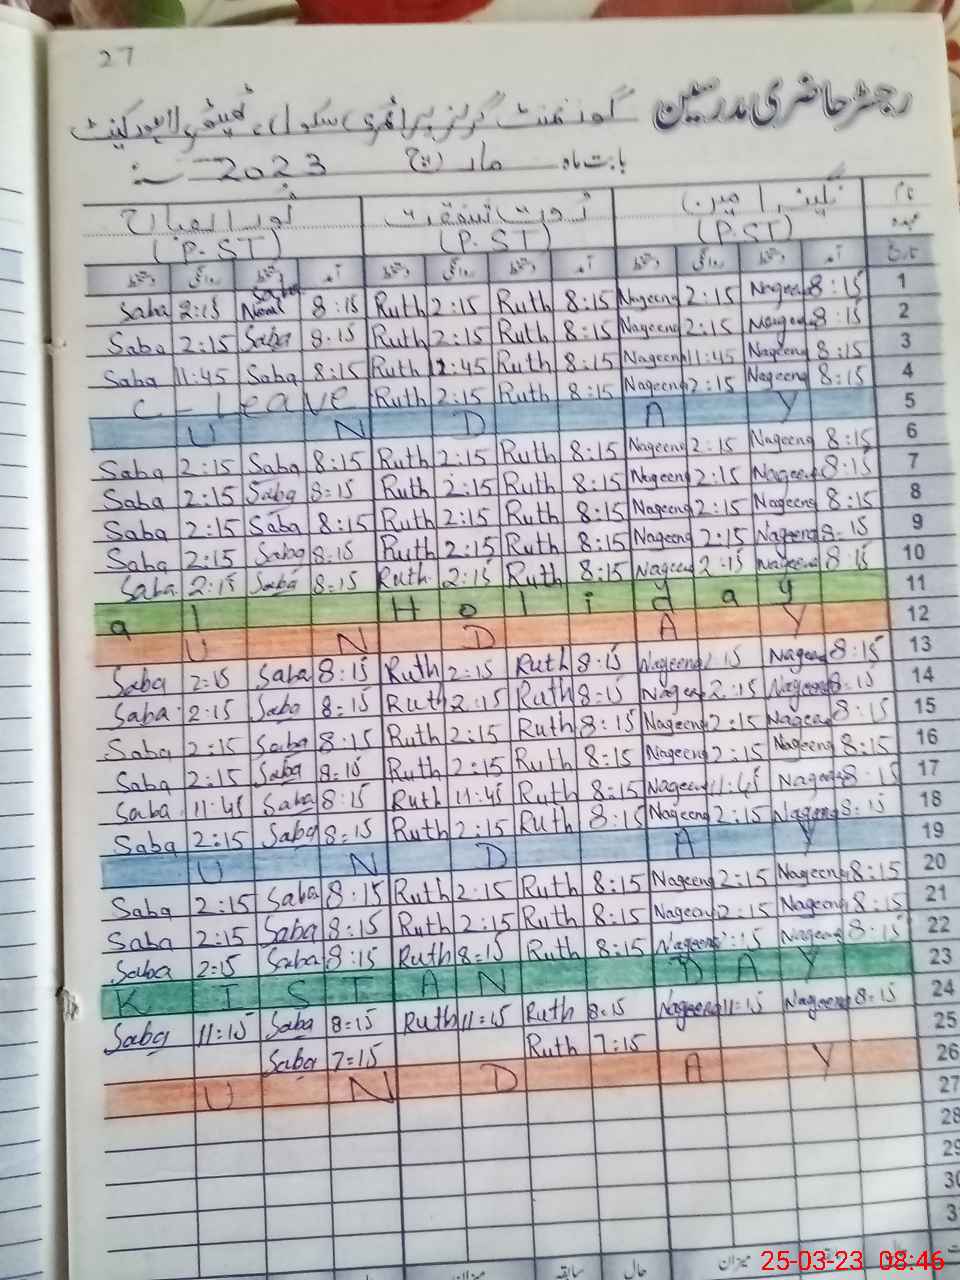 27
رجسٹر حاضری مدرسین گورنمنٹ گرلز پرائمری سکول، لاہور کینٹ
بابت ماہ مارچ 2023
نام نگینہ امین
عہدہ (P.ST) (P.ST) (P.ST)
تاریخ آمد دستخط روانگی دستخط آمد دستخط روانگی دستخط آمد دستخط روانگی دستخط
Saba 2:15 8:15 Ruth 2:15 Ruth 8:15 Nageeng 2:15 Nageeng 8:15 1
Saba 2:15 Saba 8:15 Ruth 2:15 Ruth 8:15 Nageeng 2:15 Nageeng 8:15 2
Saba 11:45 Saba 8:15 Ruth 12:45 Ruth 8:15 Nageeng 11:45 Nageeng 8:15 3
C-Leave Ruth 2:15 Ruth 8:15 Nageeng 2:15 Nageeng 8:15 4
U N D A Y 5
Saba 2:15 Saba 8:15 Ruth 2:15 Ruth 8:15 Nageeng 2:15 Nageeng 8:15 6
Saba 2:15 Saba 8:15 Ruth 2:15 Ruth 8:15 Nageeng 2:15 Nageeng 8:15 7
Saba 2:15 Saba 8:15 Ruth 2:15 Ruth 8:15 Nageeng 2:15 Nageeng 8:15 8
Saba 2:15 Saba 8:15 Ruth 2:15 Ruth 8:15 Nageeng 2:15 Nageeng 8:15 9
Saba 2:15 Saba 8:15 Ruth 2:15 Ruth 8:15 Nageeng 2:15 Nageeng 8:15 10
a l H o l i d a y 11
U N D A Y 12
Saba 2:15 Saba 8:15 Ruth 2:15 Ruth 8:15 Nageeng :15 Nageeng 8:15 13
Saba 2:15 Saba 8:15 Ruth 2:15 Ruth 8:15 Nageen 2:15 Nageeng 8:15 14
Saba 2:15 Saba 8:15 Ruth 2:15 Ruth 8:15 Nageeng 2:15 Nageeng 8:15 15
Saba 2:15 Saba 8:15 Ruth 2:15 Ruth 8:15 Nageeng 2:15 Nageeng 8:15 16
Saba 11:45 Saba 8:15 Ruth 11:45 Ruth 8:15 Nageeng 11:45 Nageeng 8:15 17
Saba 2:15 Saba 8:15 Ruth 2:15 Ruth 8:15 Nageeng 2:15 Nageeng 8:15 18
U N D A Y 19
Saba 2:15 Saba 8:15 Ruth 2:15 Ruth 8:15 Nageeng 2:15 Nageeng 8:15 20
Saba 2:15 Saba 8:15 Ruth 2:15 Ruth 8:15 Nageeng 2:15 Nageeng 8:15 21
Saba 2:15 Saba 8:15 Ruth 8:15 Ruth 8:15 Nageeng :15 Nageeng 8:15 22
K I S T A N D A Y 23
Saba 11:15 Saba 8:15 Ruth 11:15 Ruth 8:15 Nageeng 11:15 Nageeng 8:15 24
Saba 7:15 Ruth 7:15 25
U N D A Y 26
27
28
29
30
3
میزان سابقہ حال میزان
25-03-23 08:46